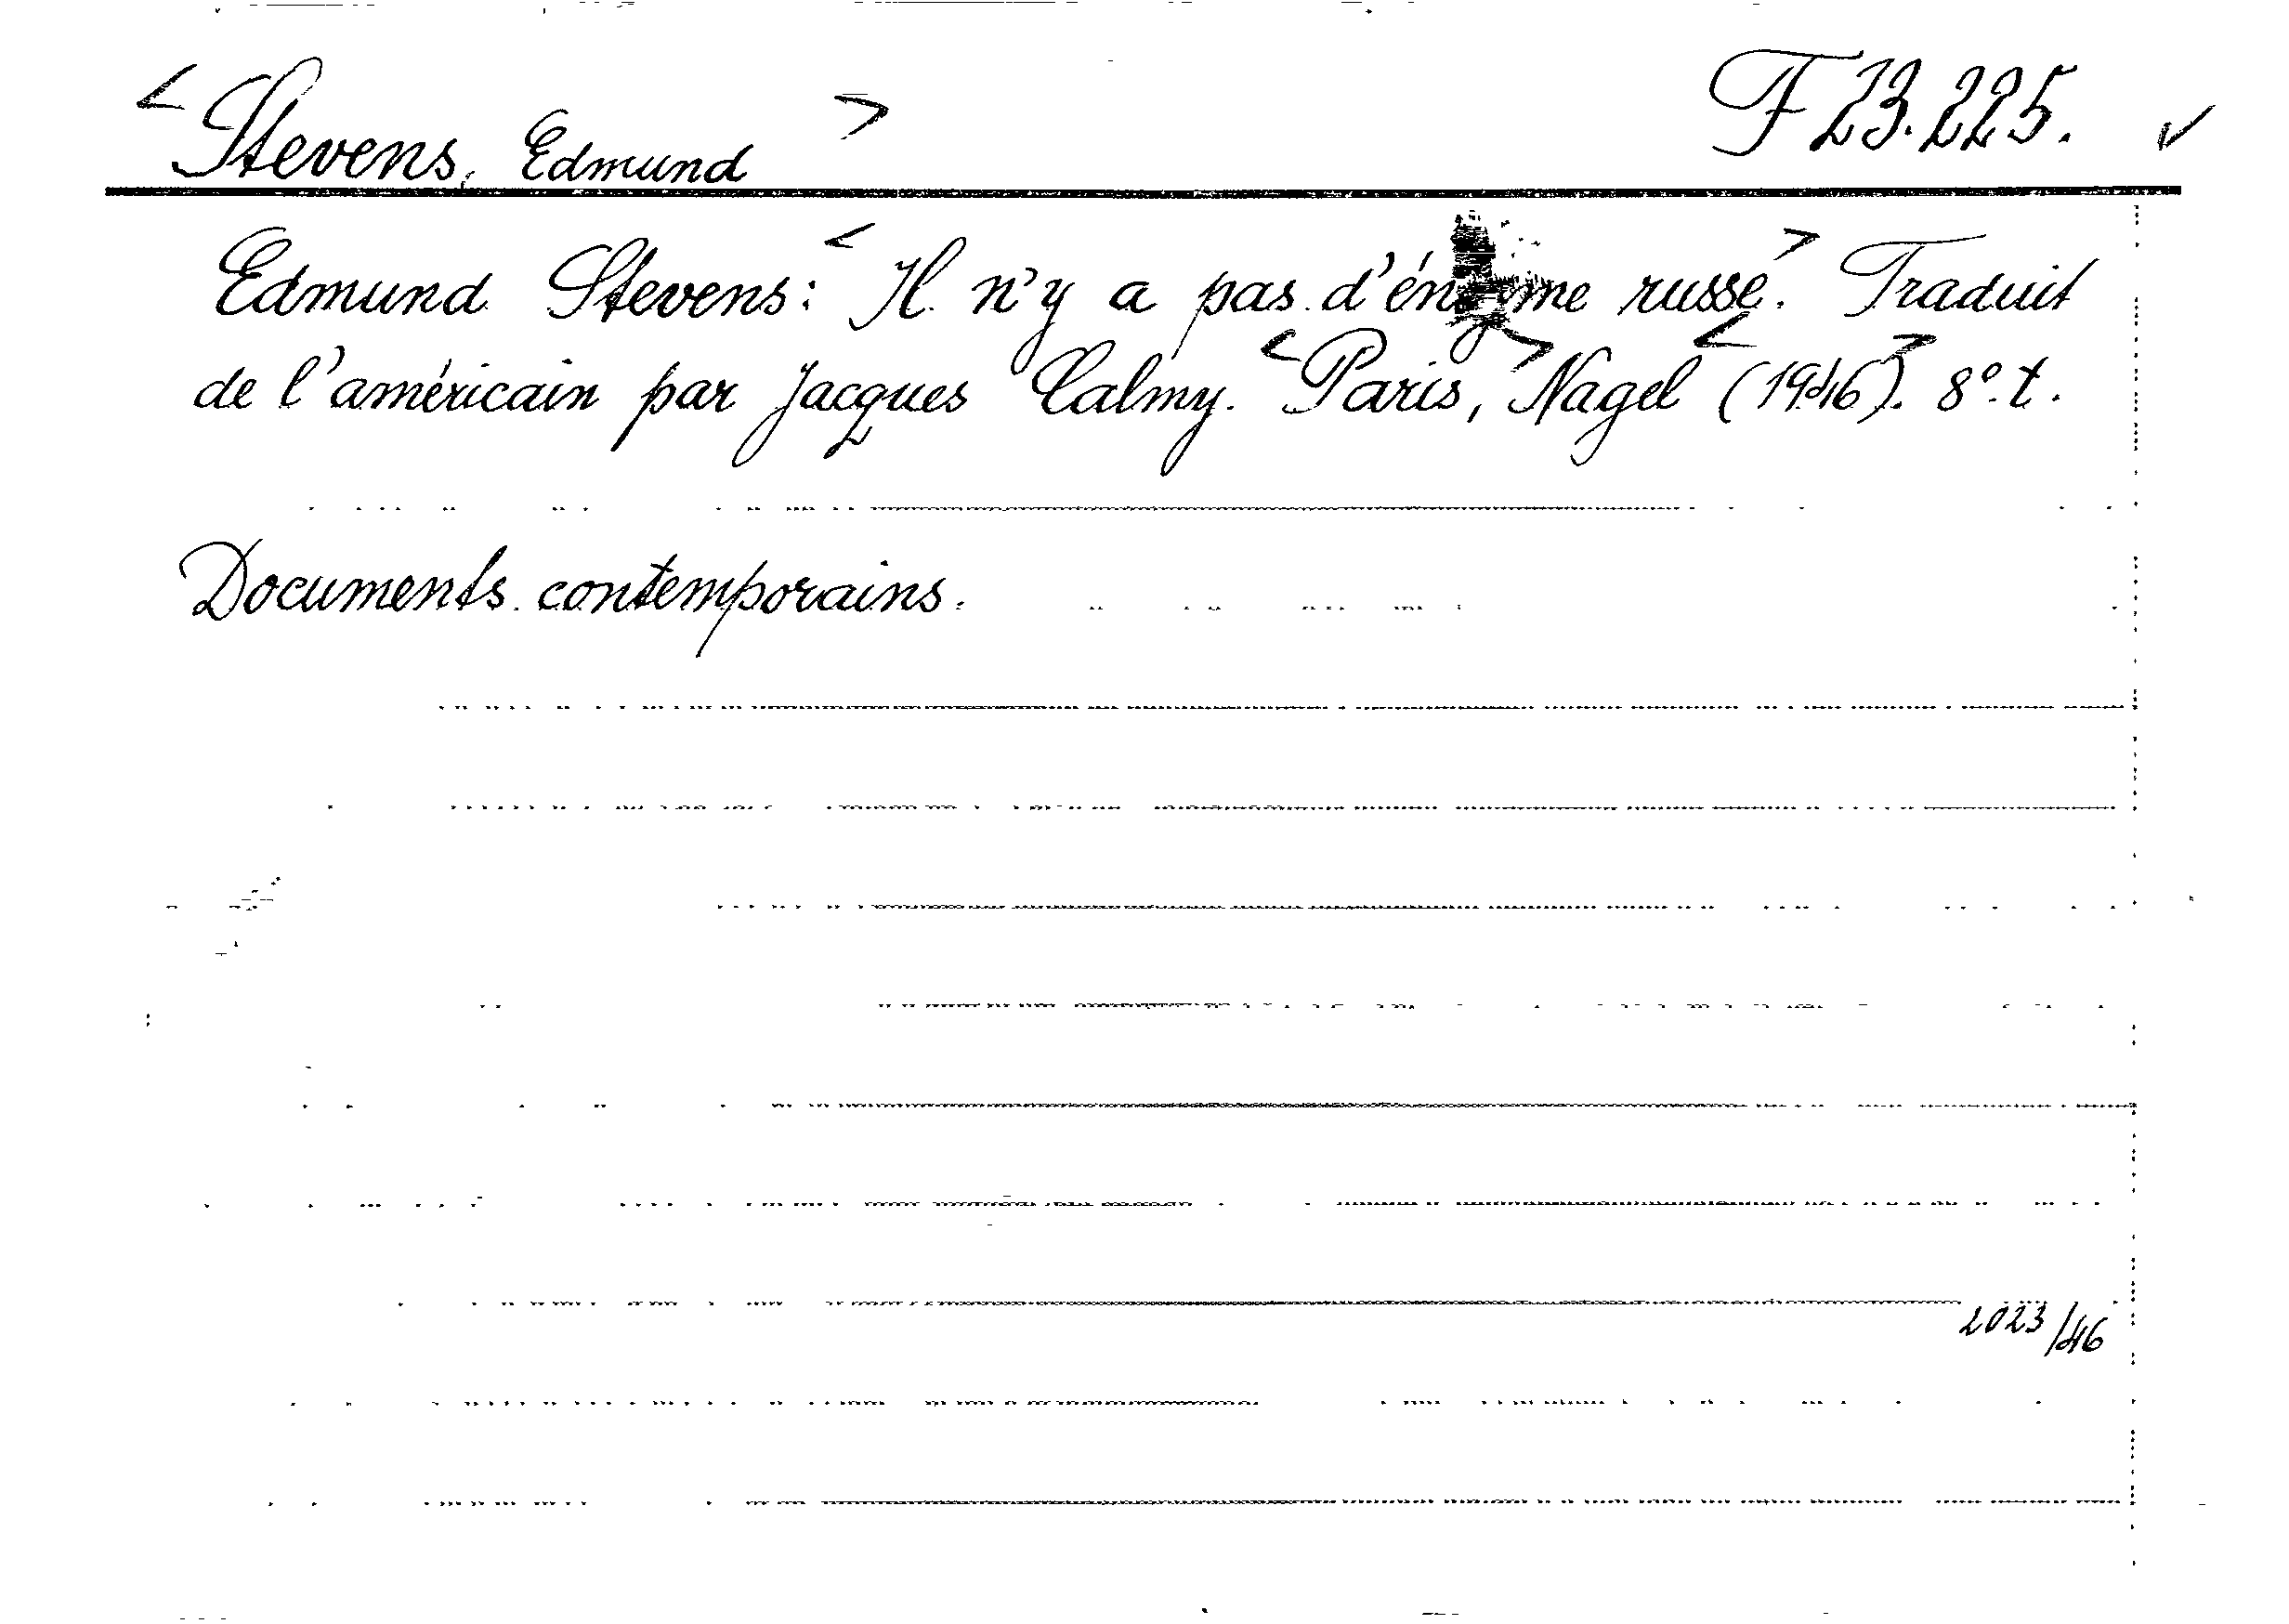 < Stevens, Edmund > F 23.225. ✓
Edmund Stevens: < Il n'y a pas d'énigme russe. > Traduit
de l'américain par Jacques Calmy. < Paris, > Nagel < (1946). > 8°. t.
Documents contemporains.
2023/46